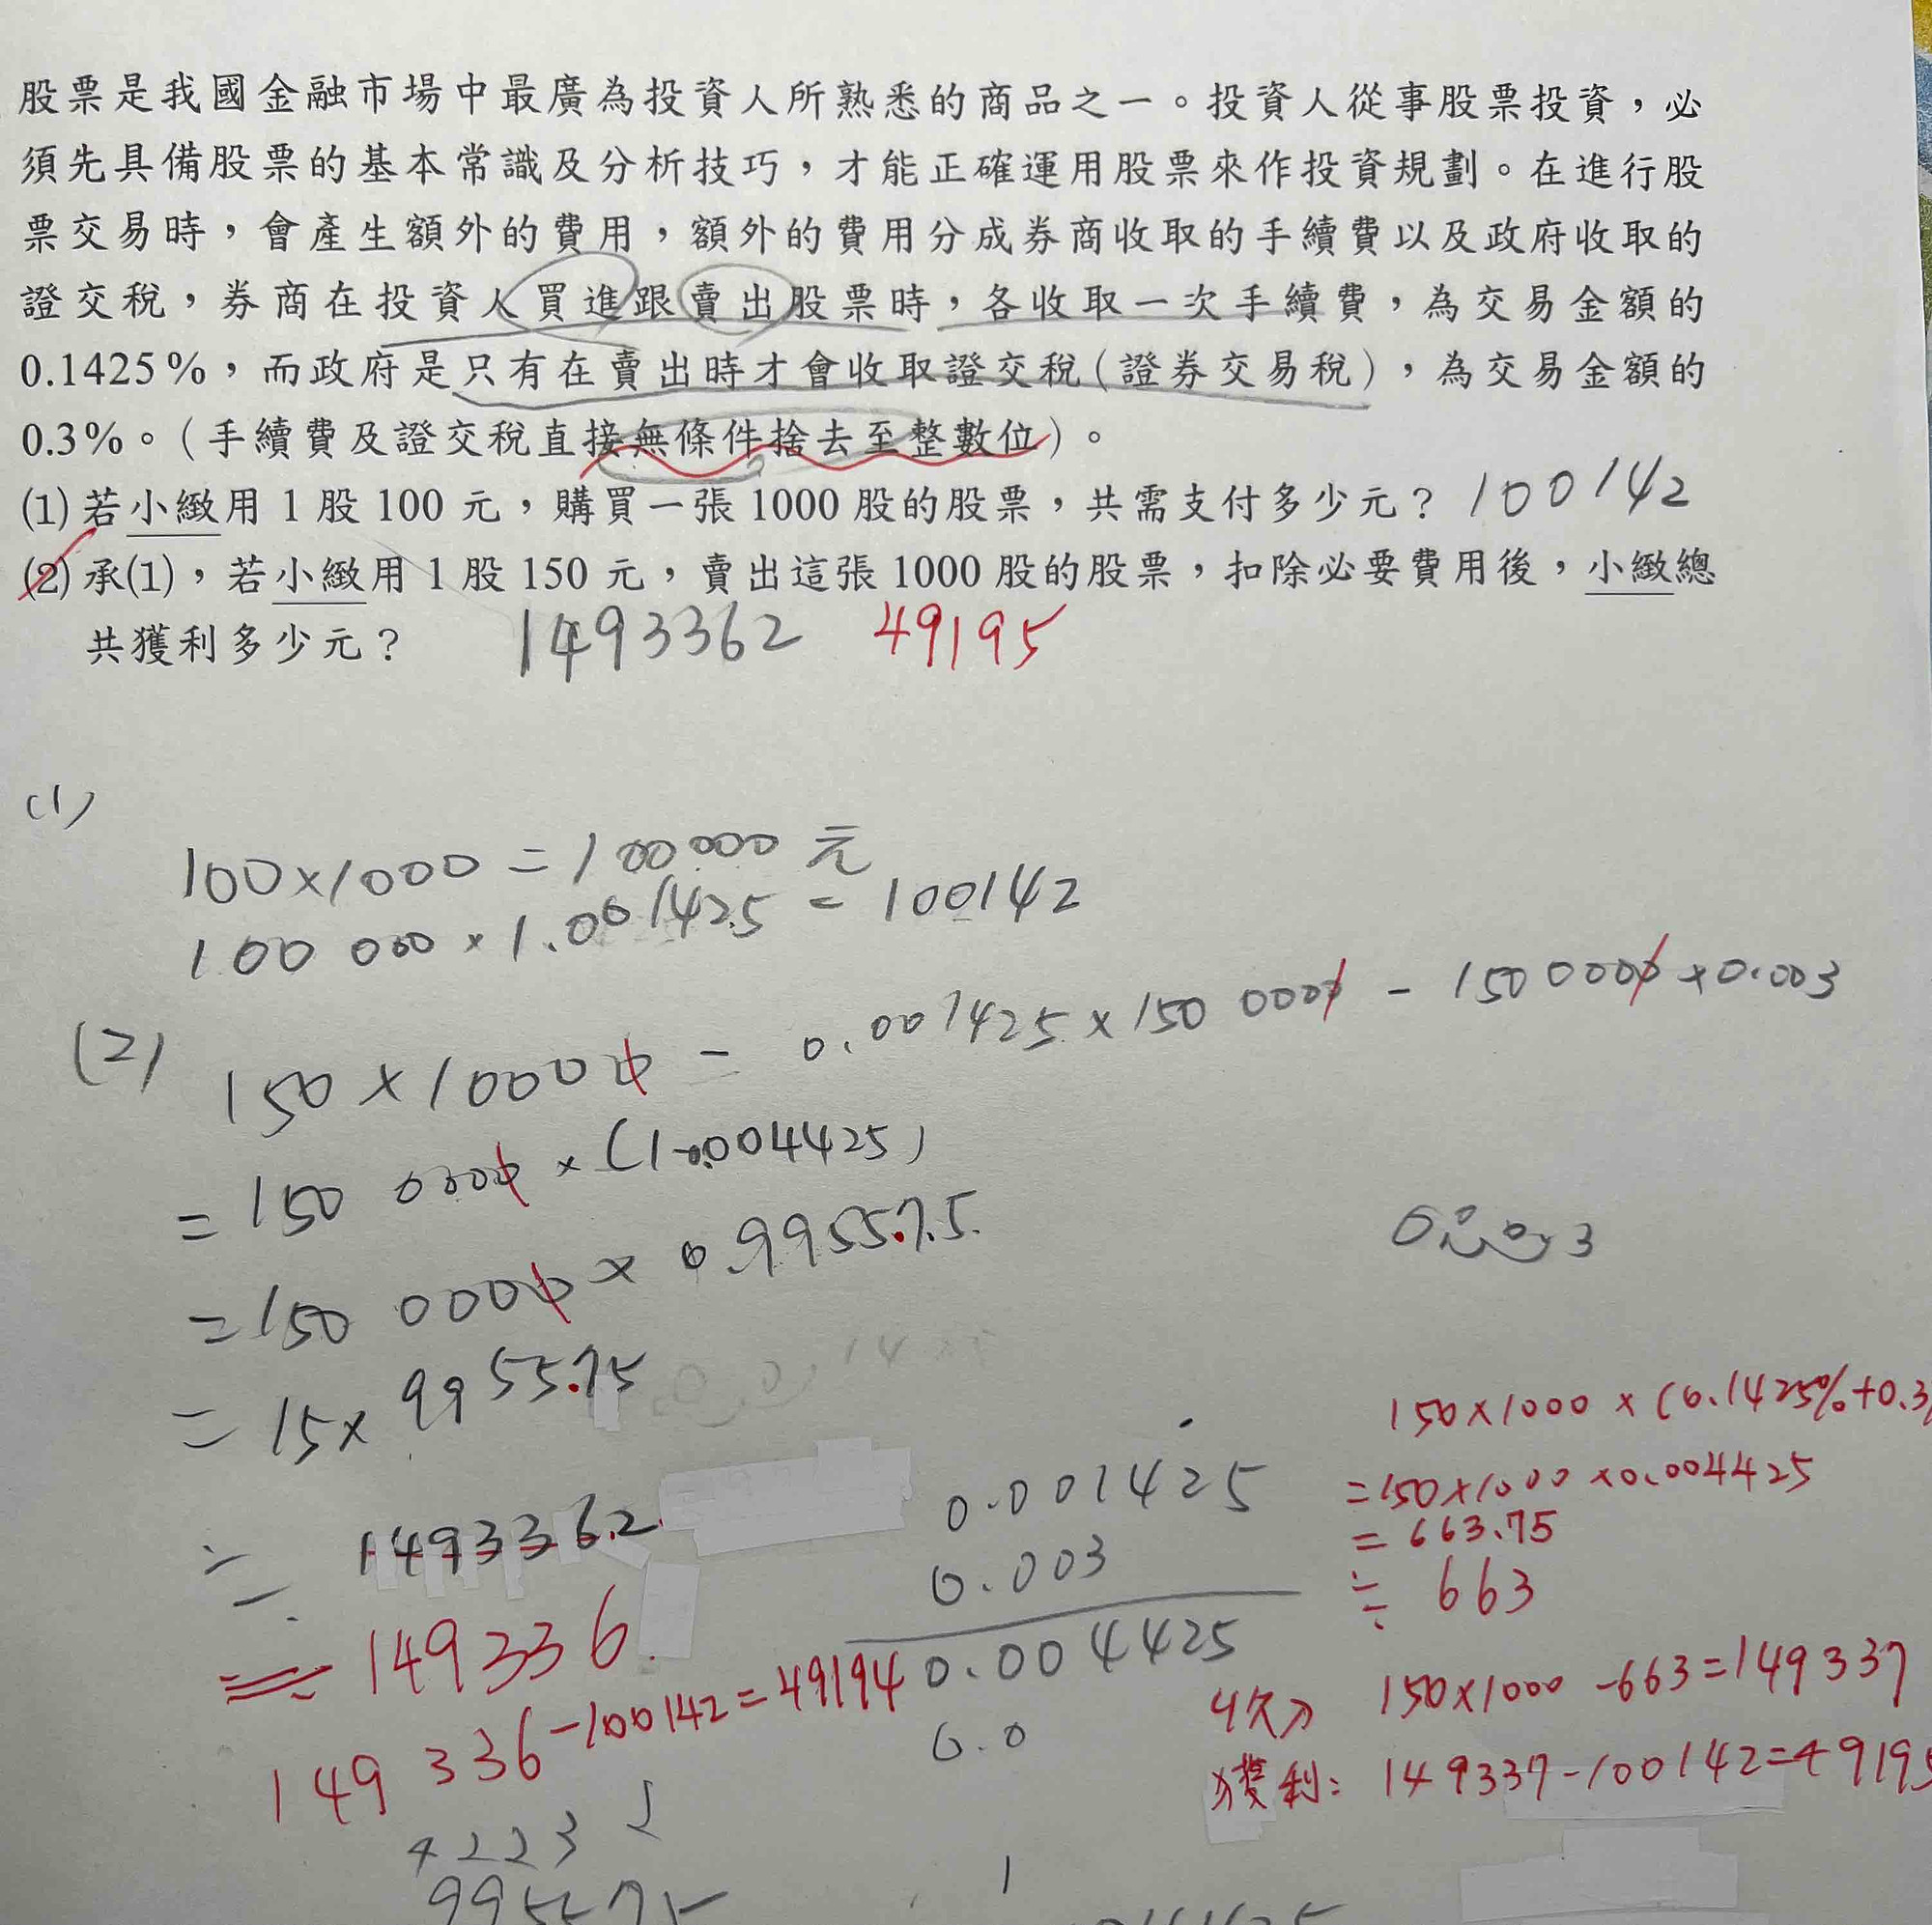 股票是我國金融市場中最廣為投資人所熟悉的商品之一。投資人從事股票投資，必
須先具備股票的基本常識及分析技巧，才能正確運用股票來作投資規劃。在進行股
票交易時，會產生額外的費用，額外的費用分成券商收取的手續費以及政府收取的
證交稅，券商在投資人買進跟賣出股票時，各收取一次手續費，為交易金額的
0.1425%，而政府是只有在賣出時才會收取證交稅(證券交易稅)，為交易金額的
0.3%。(手續費及證交稅直接無條件捨去至整數位)。
(1) 若小緻用 1 股 100 元，購買一張 1000 股的股票，共需支付多少元? 100142
(2) 承(1)，若小緻用 1 股 150 元，賣出這張 1000 股的股票，扣除必要費用後，小緻總
共獲利多少元? 1493362 49195
(1)
100×1000=100000 元
100000×1.001425=100142
(2) 150×10000-0.001425×1500000-1500000×0.003
=1500000×(1-0.004425)
=1500000×0.995575
=15×99557.5
≒149336.2
≒149336
149336-100142=49194
0.001425
0.003
0.004425
0.0
150×1000×(0.1425%+0.3
=150×1000×0.004425
=663.75
≒663
收入 150×1000-663=149337
獲利: 149337-100142=49195
42232
995575